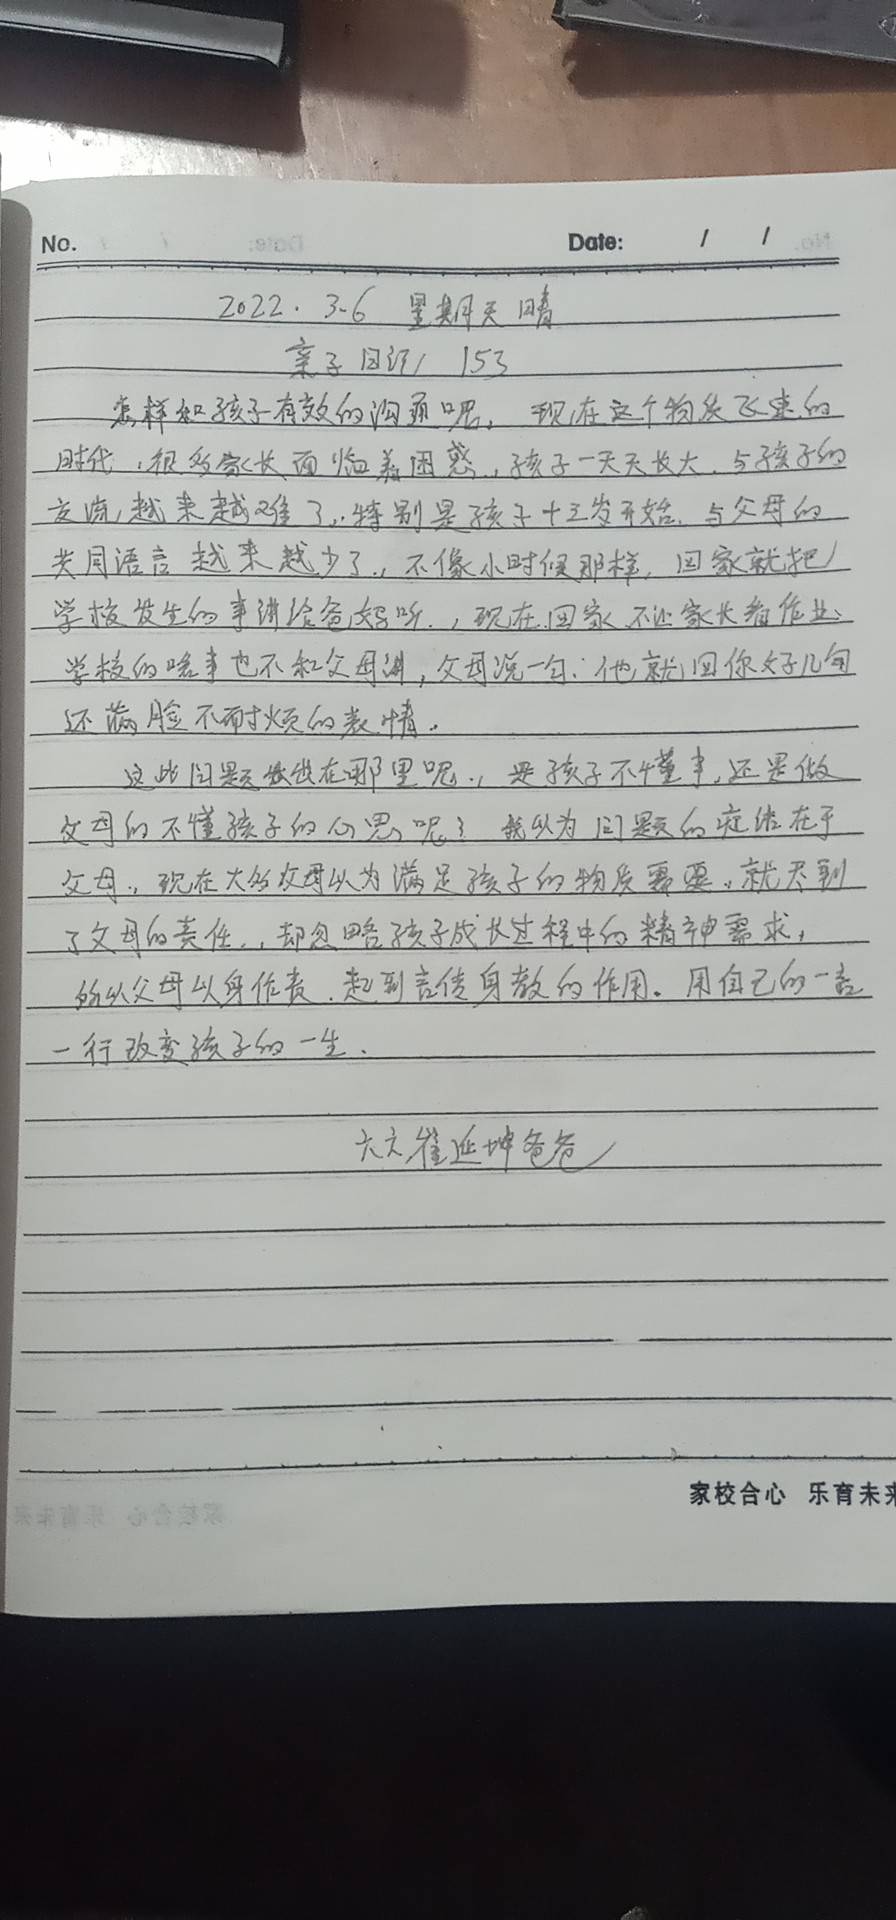 No. Date: / /
2022.3.6 星期天 晴
亲子日记 153
怎样和孩子有效的沟通呢，现在这个物质飞速的
时代，很多家长面临着困惑，孩子一天天长大，与孩子的
交流越来越难了，特别是孩子十三岁开始，与父母的
共同语言越来越少了，不像小时候那样，回家就把
学校发生的事讲给爸妈听，现在回家不让家长看作业、
学校的啥事也不和父母讲，父母说一句，他就回你好几句
还满脸不耐烦的表情。
这些问题出在哪里呢，是孩子不懂事，还是做
父母的不懂孩子的心思呢？我以为问题的症结在于
父母，现在大多父母以为满足孩子的物质需要，就尽到
了父母的责任，却忽略孩子成长过程中的精神需求，
所以父母以身作责，起到言传身教的作用。用自己的一言
一行改变孩子的一生.
六六崔延坤爸爸
家校合心 乐育未来